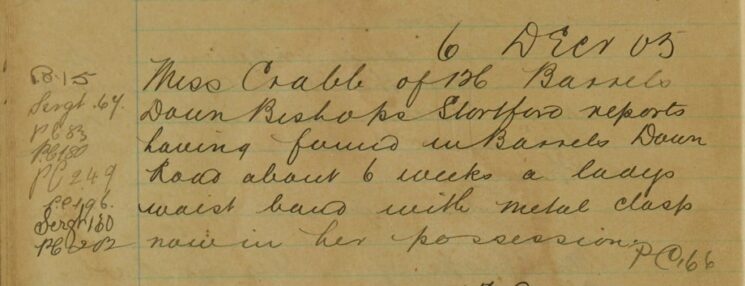 6 Decr 05
Miss Crabb of 136 Barrels
Down Bishops Stortford reports
having found in Barrels Down
Road about 6 weeks a ladys
waist band with metal clasp
now in her possession.
PC 166
Sergt 64.
PC 83
PC 249
PC 196.
Sergt 130
PC 202